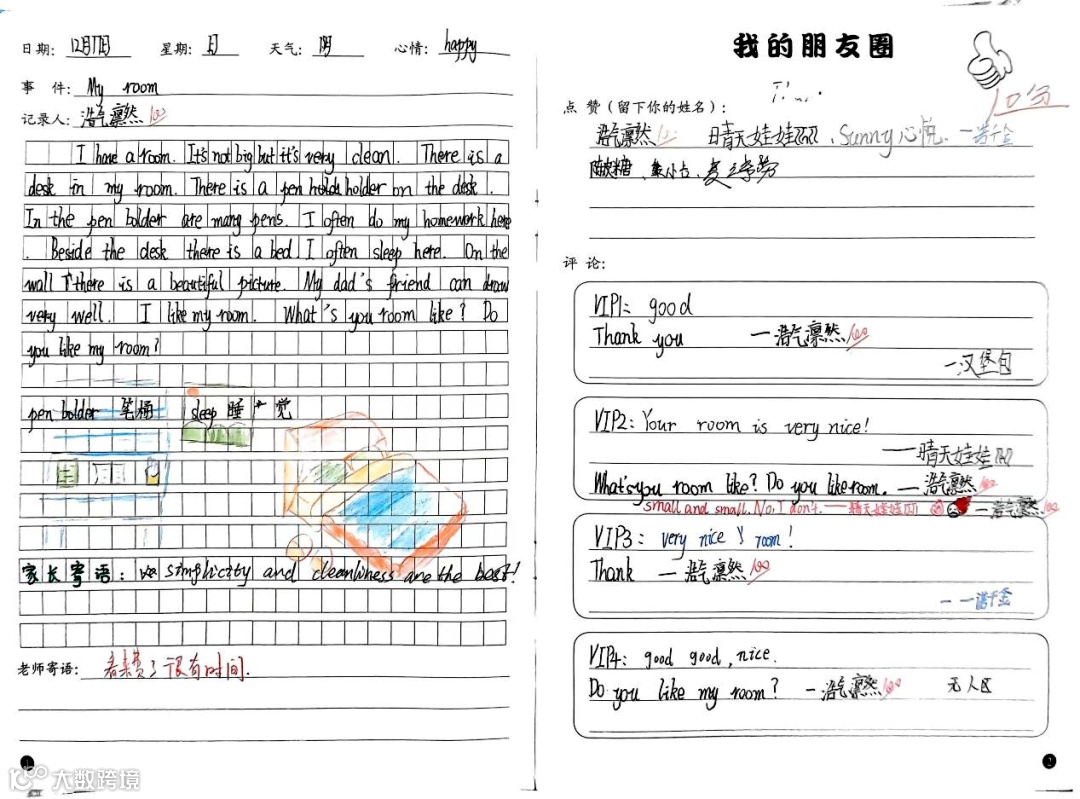 日期: 12月11日 星期: 一 天气: 阴 心情: happy
事 件: My room
记录人: 浩气凛然 100
I have a room. It's not big but it's very clean. There is a
desk in my room. There is a pen holder on the desk.
In the pen bolder are many pens. I often do my homework here
. Beside the desk there is a bed. I often sleep here. On the
wall there is a beautiful picture. My dad's friend can draw
very well. I like my room. What's you room like? Do
you like my room?
pen bolder 笔桶 sleep 睡觉
家长寄语: simplicity and cleanliness are the best!
老师寄语: 看来费了很多时间.
1
大数跨境
我的朋友圈
10分
点 赞(留下你的姓名):
浩气凛然 晴天娃娃 、Sunny心悦、一诺千金
评 论:
VIP1: good
Thank you —浩气凛然100
—汉堡包
VIP2: Your room is very nice!
——晴天娃娃
What's you room like? Do you like room. —浩气凛然100
small and small. No, I don't. ——晴天娃娃 —浩气凛然100
VIP3: very nice room!
Thank —浩气凛然100
——诺千金
VIP4: good good, nice.
Do you like my room? —浩气凛然100 无人区
2